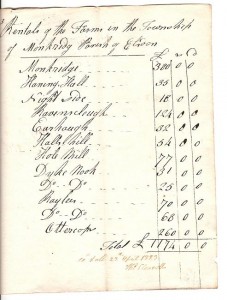 Rentals of the Farms in the Township
of Monkridge Parish of Elsdon
£ s D
Monkridge 300 0 0
Haining Hall 35 0 0
Night Side 18 0 0
Ravenscleugh 124 0 0
Earhaugh 52 0 0
Hatts hill 54 0 0
Hole Mill 77 0 0
Dyke Nook 31 0 0
Do Do 25 0 0
Raylees 70 0 0
Do Do 68 0 0
Ottercops 260 0 0
Total £ 1174 0 0
April 1823